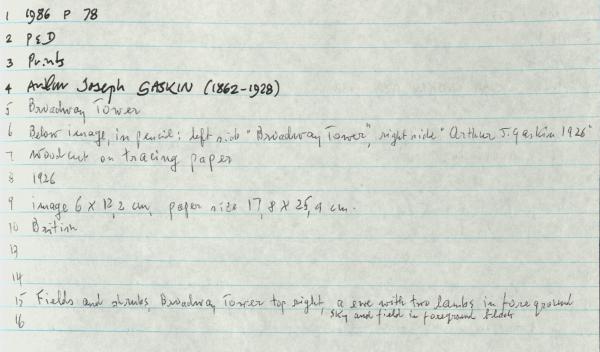 1 1986 P 78
2 P&D
3 Prints
4 Arthur Joseph GASKIN (1862-1928)
5 Broadway Tower
6 Below image, in pencil: left side "Broadway Tower", right side "Arthur J. Gaskin 1926"
7 Woodcut on tracing paper
8 1926
9 image 6 x 12,2 cm, paper size 17,8 x 25,4 cm.
10 British
13
14
15 Fields and shrubs, Broadway Tower top right, a ewe with two lambs in foreground
sky and field in foreground black
16